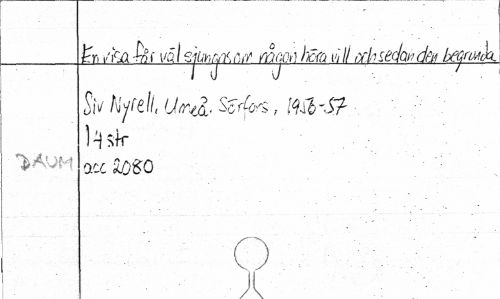 En visa får väl sjungas om någon höra vill och sedan den begrunda
Siv Nyrell, Umeå. Sörfors, 1956-57
14 str
DAUM acc 2080